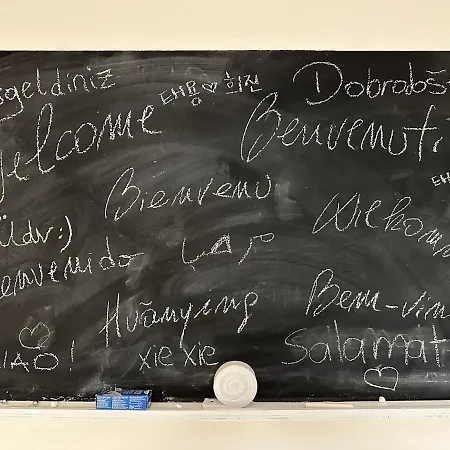 sgeldiniz
태용♡희진
Dobrodoš
Welcome
Benvenuti
Bienvenu
Üdv:)
Wiekom
envenido
Huānyíng
Bem-vin
CIAO!
xie xie
Salamat